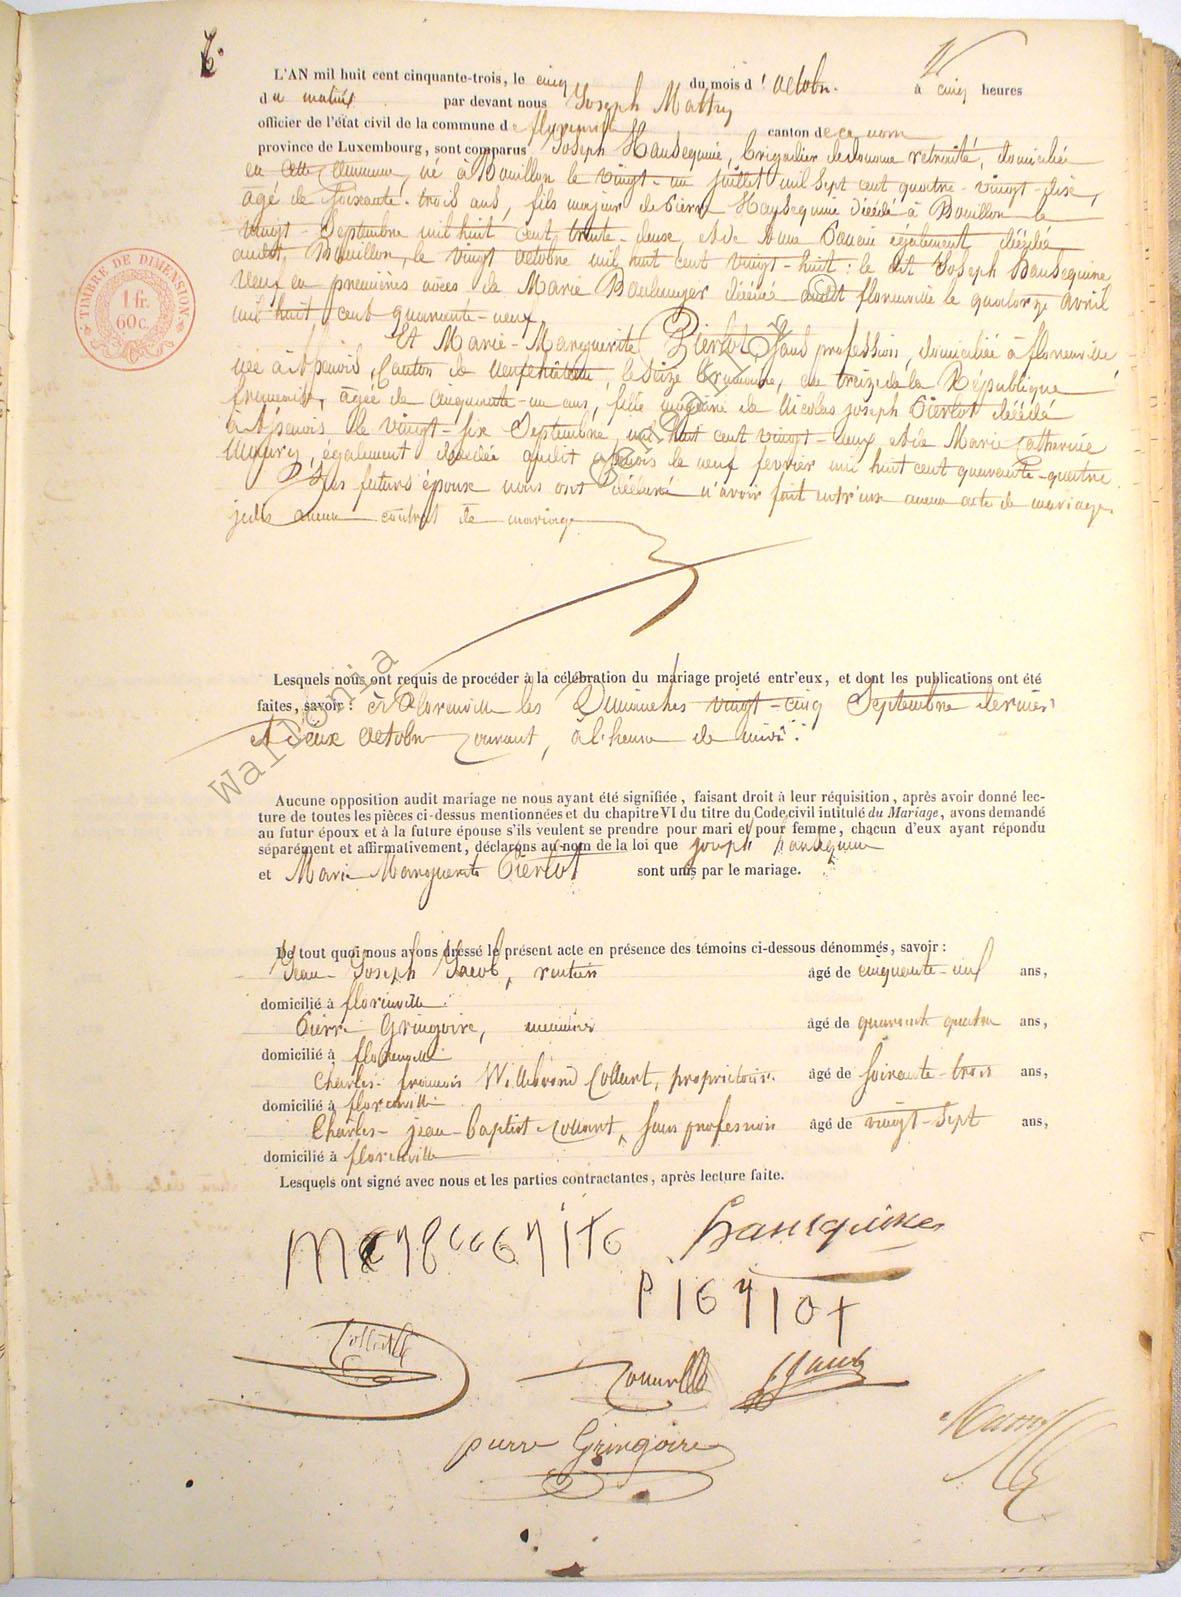 L'AN mil huit cent cinquante-trois, le cinq du mois d'octobre à cinq heures
du matin par devant nous Joseph Mathy
officier de l'état civil de la commune de florenville canton de ce nom
province de Luxembourg, sont comparus Joseph Hausequine, brigadier de douane retraité, domicilié
en cette commune, né à Bouillon le vingt-un juillet mil sept cent quatre-vingt-dix,
âgé de soixante-trois ans, fils majeur de Pierre Hausequine décédé à Bouillon le
vingt Septembre mil huit cent trente-deux, et de Anne également décédée
audit Bouillon, le vingt octobre mil huit cent vingt-huit : le dit Joseph Hausequine
veuf en premières noces de Marie Boulanger décédée audit florenville le quatorze avril
mil huit cent quarante-neuf,
Et Marie-Marguerite Pierlot, sans profession, domiciliée à florenville
née à Assenois, Canton de neufchâteau, le seize brumaire, an treize de la République
française, âgée de cinquante-un ans, fille majeure de Nicolas joseph Pierlot décédé
à Assenois le vingt-six Septembre mil huit cent vingt-deux et de Marie Catherine
également décédée audit assenois le neuf février mil huit cent quarante-quatre
Les futurs époux nous ont déclaré n'avoir fait entr'eux aucun acte de mariage,
aucun contrat de mariage
Lesquels nous ont requis de procéder à la célébration du mariage projeté entr'eux, et dont les publications ont été
faites, savoir : à florenville les Dimanches vingt-cinq Septembre dernier
et deux octobre courant, à l'heure de midi.
Aucune opposition audit mariage ne nous ayant été signifiée, faisant droit à leur réquisition, après avoir donné lec-
ture de toutes les pièces ci-dessus mentionnées et du chapitre VI du titre du Code civil intitulé du Mariage, avons demandé
au futur époux et à la future épouse s'ils veulent se prendre pour mari et pour femme, chacun d'eux ayant répondu
séparément et affirmativement, déclarons au nom de la loi que joseph hausequine
et Marie Marguerite Pierlot sont unis par le mariage.
De tout quoi nous avons dressé le présent acte en présence des témoins ci-dessous dénommés, savoir :
Jean-Joseph Jacob, rentier âgé de cinquante-neuf ans,
domicilié à florenville
Pierre Gringoire, menuisier âgé de quarante quatre ans,
domicilié à florenville
Charles-françois Willebrord Collart, propriétaire âgé de soixante-trois ans,
domicilié à florenville
Charles-jean-Baptiste Collart, sans profession âgé de vingt-sept ans,
domicilié à florenville
Lesquels ont signé avec nous et les parties contractantes, après lecture faite.
Marguerite hausequine
Pierlot
Collart
Collart Jacob
pierre Gringoire
Mathy
TIMBRE DE DIMENSION
1 fr.
60 c.